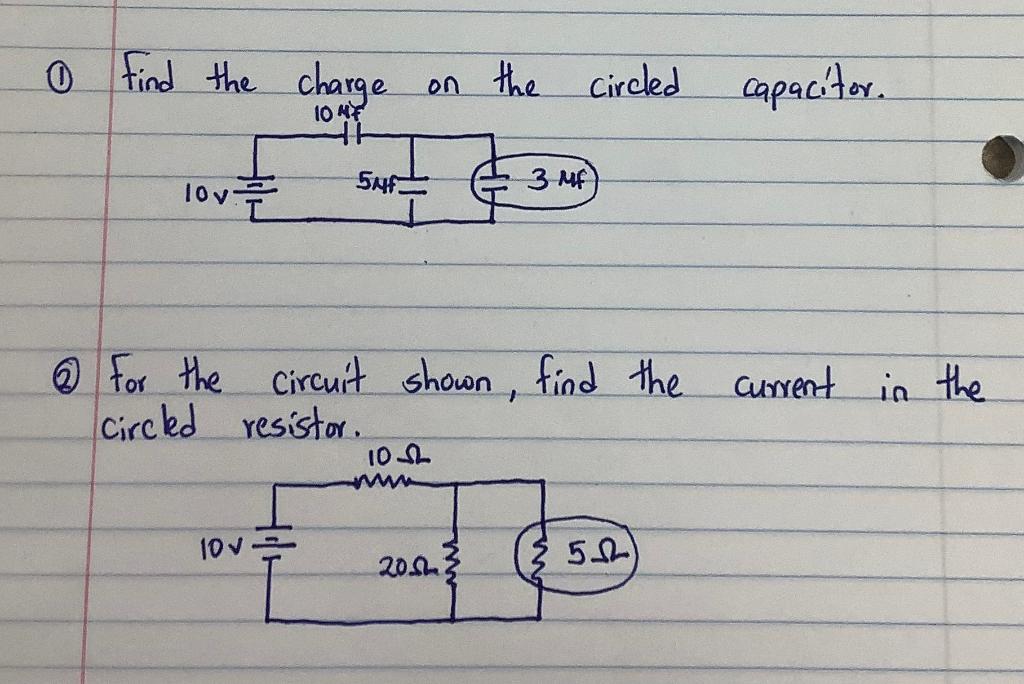 ① find the charge on the circled capacitor.
10 μf
10 v
5 μf
3 μf
② For the circuit shown, find the current in the
circled resistor.
10 Ω
10 v
20 Ω
5 Ω